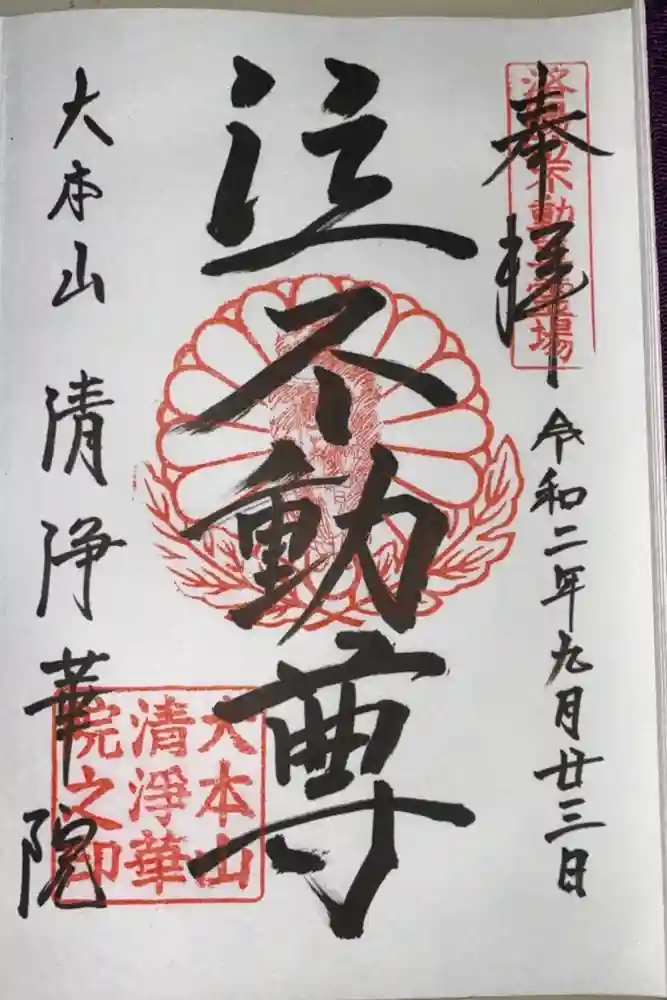 奉拝
令和二年九月廿三日
洛陽 不動尊霊場
泣不動尊
大本山 清浄華院
大本山
清淨華
院之印